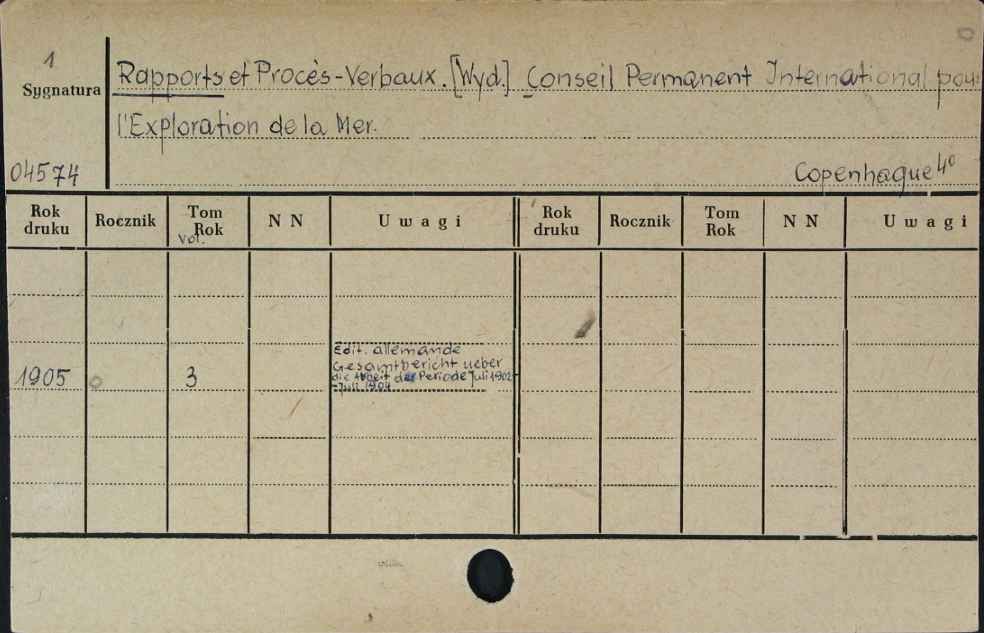 1
Sygnatura
04574
Rapports et Procès-Verbaux. [Wyd.] Conseil Permanent International pour
l'Exploration de la Mer.
Copenhague 4°
Rok druku Rocznik Tom Rok Vol. N N Uwagi Rok druku Rocznik Tom Rok N N Uwagi
1905 3 Edit. allemande
Gesamtbericht ueber
die Arbeit der Periode Juli 1902
-Juli 1904